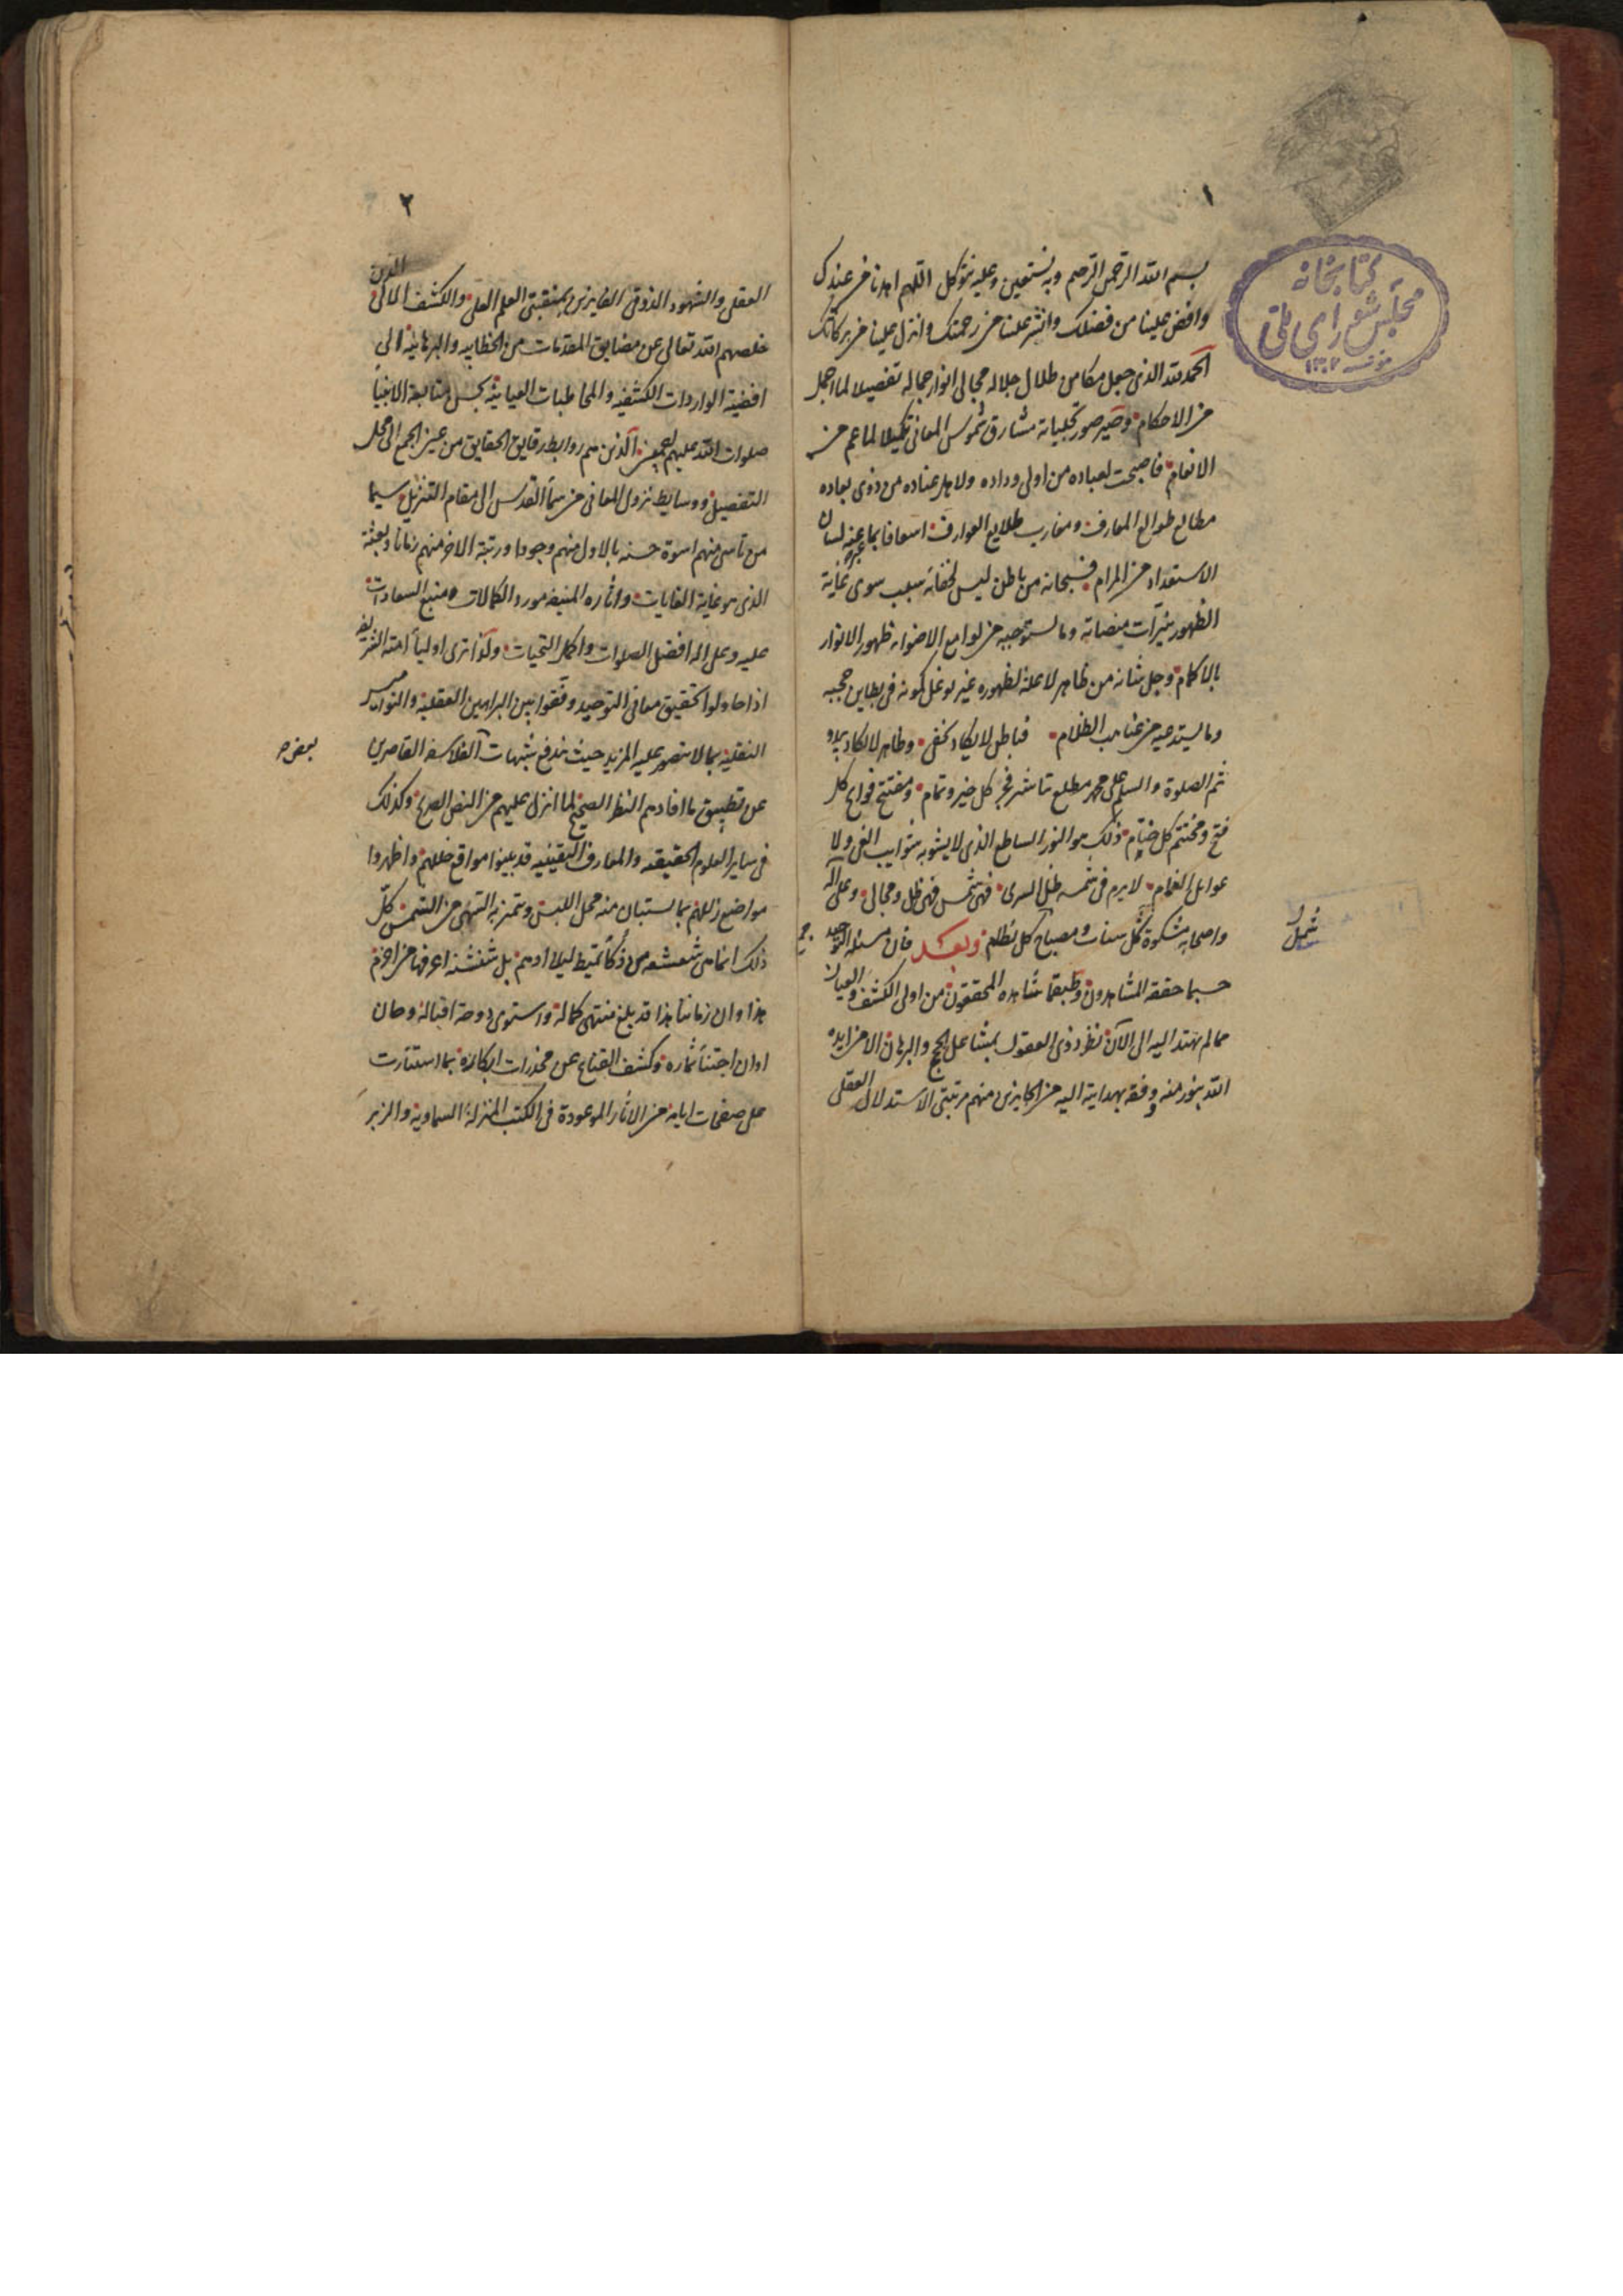 ١
كتابخانه
مجلس شورای ملی
بسم الله الرحمن الرحيم وبه نستعين وعليه نتوكل اللهم اهدنا من عندك
وافض علينا من فضلك وانشر علينا من رحمتك وانزل علينا من بركاتك
الحمد لله الذى جعل مكامن ظلال جلاله مجالى انوار جماله تفصيلا لما اجمل
من الاحكام وصير صور تجلياته مشارق شموس المعانى تكميلا لما عم من
الانعام فاصبحت لعباده من اولى وداده ولاهل عناده من ذوى بعاده
مطالع طوالع المعارف ومغارب طلايع العوارف اسعافا بما عبر عنه لسان
الاستعداد من المرام فسبحانه من باطن ليس لخفائه سبب سوى غاية
الظهور بنيرات منصاته وما يستوجبه من لوامع الاضواء ظهور الانوار
بالاكمام وجل شانه من ظاهر لا علة لظهوره غير توغل كمونه فى بطاين حجبه
وما يستدعيه من غياهب الظلام فباطن لا يكاد يخفى وظاهر لا يكاد يبدو
ثم الصلوة والسلم على محمد مطلع تباشير فجر كل خير وتمام ومفتتح فواتح كل
فتح ومختتم كل ختام ذلك هو النور الساطع الذى لا يشوبه شوايب الغى ولا
الغمام لا يرم فى شمسه ظل السرى فهى شمس فهى ظل وهى لى وعلى آله
واصحابه مشكوة كل ومصباح كل ظلام وبعد فان مسئلة التوحيد
حسبما حققه المشاهدون وطبقما شاهده المحققون من اولى الكشف والعيان
مما لم يهتد اليه الى الآن نظر ذوى العقول بمشاعل الحجج والبرهان الا من ايده
الله بنور منه ووفقه بهدايته اليه من الحايزين منهم مرتبتى الاستدلال العقلى
٢
العقلى والشهود الذوقى الفايزين بمنقبتى العلم العلى والكشف الالى الذين
خلصهم الله تعالى عن مضايق المقدمات من الخطابيه والبرهانيه الى
افضية الواردات الكشفيه والمخاطبات العيانيه بحسن متابعة الانبياء
صلوات الله عليهم اجمعين الذين هم روابط رقايق الحقايق من عين الجمع الى محل
التفصيل ووسايط نزول المعانى من سماء القدس الى مقام التنزيل سيما
من تأسى منهم اسوة حسنه بالاول منهم وجودا ورتبة الاخر منهم زمانا وبعثة
الذى هو غاية الغايات واثاره المنيفه مورد الكمالات ومنبع السعادات
عليه وعلى اله افضل الصلوات واكمل التحيات ولذا ترى اولياء امته الشريفه
اذا حاولوا تحقيق معانى التوحيد وفقوا بين البراهين العقليه والنواميس
النقليه بما لا يتصور عليه المزيد حيث يندفع شبهات الفلاسفه القاصرين
عن تطبيق ما افادهم النظر الصحيح لما انزل عليهم من النص الصريح وكذلك
فى ساير العلوم الحقيقه والمعارف اليقينيه قد بينوا مواقع خللهم واظهروا
مواضع زللهم بما يستبان منه محمل اللبس ويتميز به السهى من الشمس كل
ذلك انما هى شعشعه من ذكاء تميط ليلا ادهم بل شنشنه اعرفها من اخزم
هذا وان زماننا هذا قد بلغ منتهى كماله واستوى دوحة اقباله وحان
اوان اجتناء ثماره وكشف القناع عن مخدرات ابكاره بما استنارت
على صفحات ايامه من الاثار الموعودة فى الكتب المنزلة السماويه والزبر